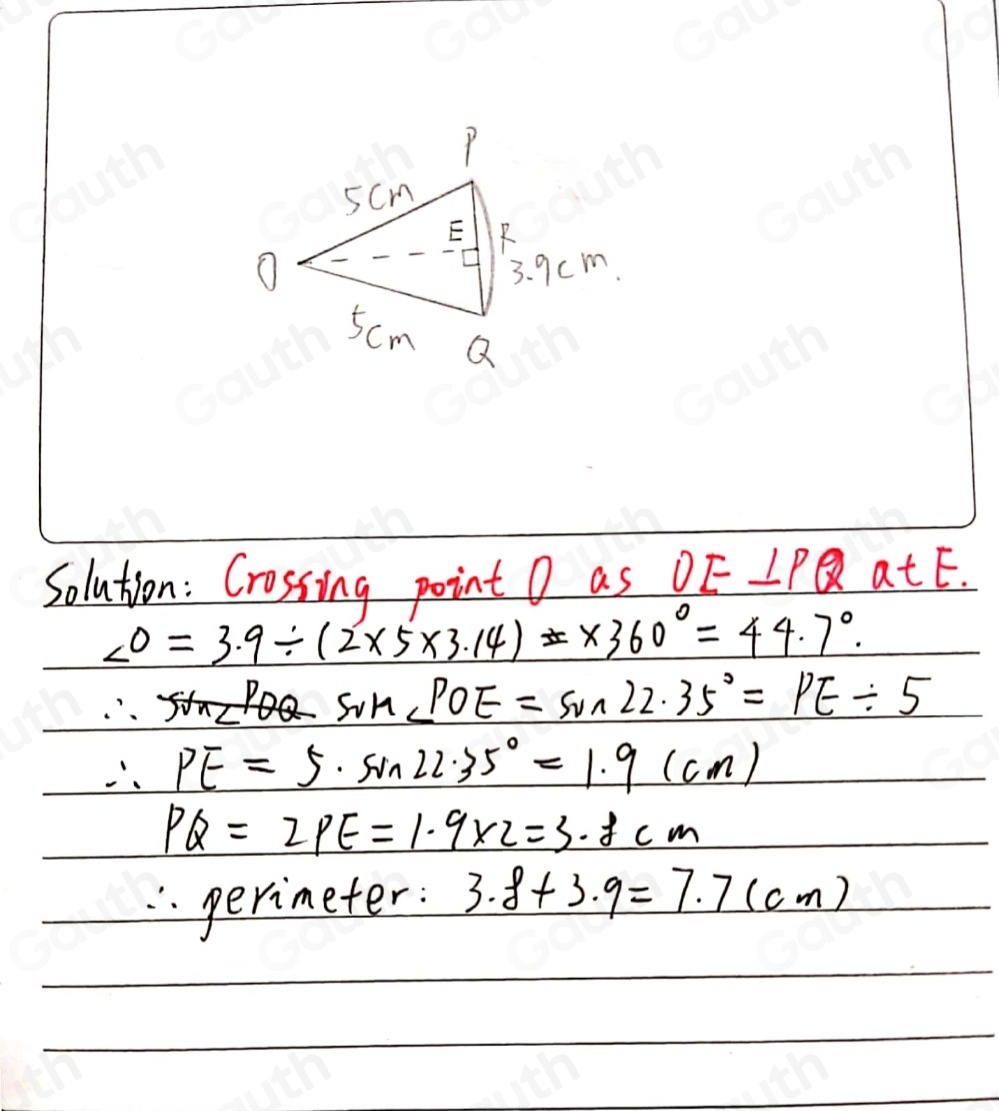 P
5cm
E R
O 3.9cm.
5cm
Q
Solution: Crossing point O as OE⊥PQ at E.
∠O = 3.9÷(2×5×3.14) ×360° = 44.7°.
∴ sin∠POQ sin∠POE = sin22.35° = PE÷5
∴ PE = 5·sin22.35° = 1.9 (cm)
PQ = 2PE = 1.9×2 = 3.8cm
∴ perimeter: 3.8+3.9=7.7(cm)
Gauth